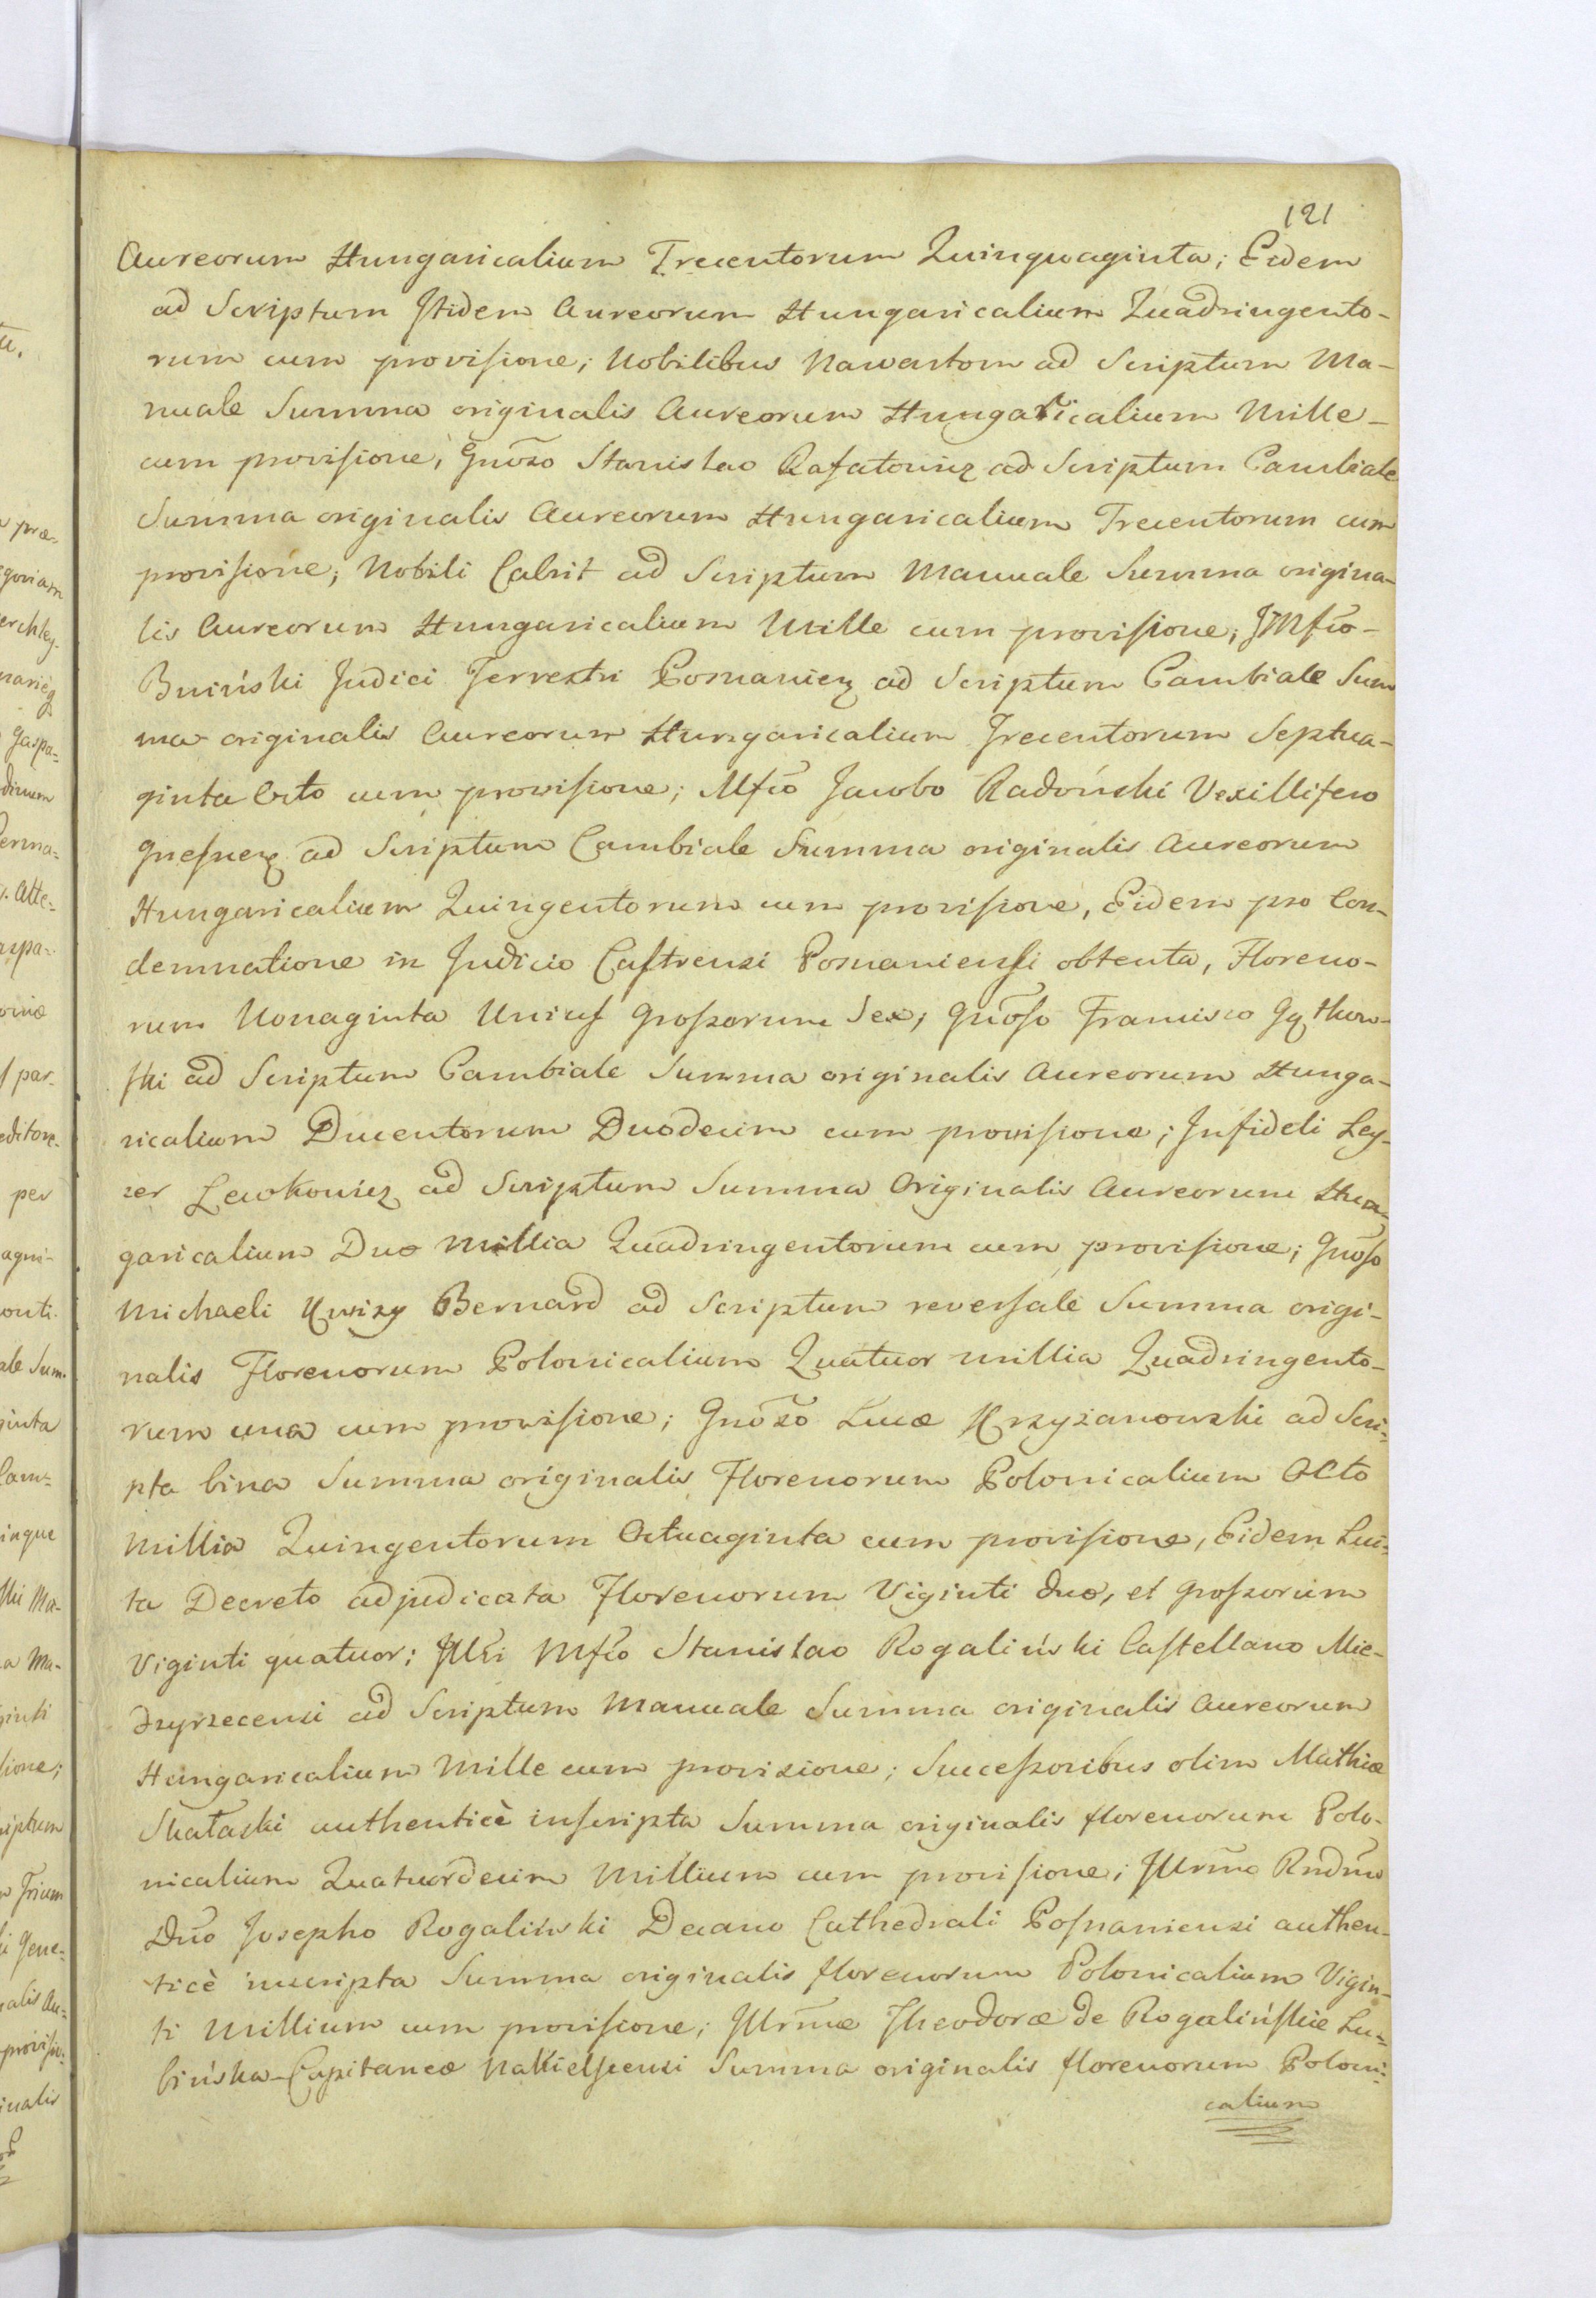 121
Aureorum Hungaricalium Trecentorum Quinquaginta; Eidem
ad Scriptum Itidem Aureorum Hungaricalium Quadringento-
rum cum provisione; Nobilibus Nawartom ad Scriptum Ma-
nuale Summa originalis Aureorum Hungaricalium Mille-
cum provisione, Gnoso Stanislao Rafatowicz ad Scriptum Cambiale
Summa originalis Aureorum Hungaricalium Trecentorum cum
provisione; Nobili Cabrit ad Scriptum Manuale Summa origina-
lis Aureorum Hungaricalium Mille cum provisione; JMfco-
Bniński Judici Terrestri Posnanien ad Scriptum Cambiale Sum
ma originalis Aureorum Hungaricalium Trecentorum Septua-
ginta Octo cum provisione; Mfco Jacobo Radoński Vexillifero
Gnesnen ad Scriptum Cambiale Summa originalis Aureorum
Hungaricalium Quingentorum cum provisione, Eidem pro Con-
demnatione in Judicio Castrensi Posnaniensi obtenta, Floreno-
rum Nonaginta Unius Grossorum Sex; Gnoso Francisco
ski ad Scriptum Cambiale Summa originalis Aureorum Hunga-
ricalium Ducentorum Duodecim cum provisione; Infideli Ley-
zer Lewkowicz ad Scriptum Summa Originalis Aureorum Hun-
garicalium Duo Millia Quadringentorum cum provisione; Gnoso
Michaeli Kwizy Bernard ad Scriptum reversale Summa origi-
nalis Florenorum Polonicalium Quatuor millia Quadringento-
rum una cum provisione; Gnoso Lucæ Krzyżanowski ad Scri-
pta bina Summa originalis Florenorum Polonicalium Octo
Millia Quingentorum Octuaginta cum provisione, Eidem Lui-
ta Decreto adjudicata Florenorum Viginti duo, et Grossorum
Viginti quatuor; Jllri Mfco Stanislao Rogaliński Castellano Mie-
dzyrzecensi ad Scriptum Manuale Summa originalis Aureorum
Hungaricalium Mille cum provisione; Successoribus olim Mathiæ
Skałaski authenticè inscripta Summa originalis florenorum Polo-
nicalium Quatuordecim Millium cum provisione; Jllrmo Rndmo
Dno Josepho Rogaliński Decano Cathedrali Posnaniensi authen-
ticè inscripta Summa originalis florenorum Polonicalium Vigin-
ti Millium cum provisione; Jllrmæ Theodoræ de Rogalińskie Lu-
bińska Capitaneæ Nakielscensi Summa originalis florenorum Poloni-
calium